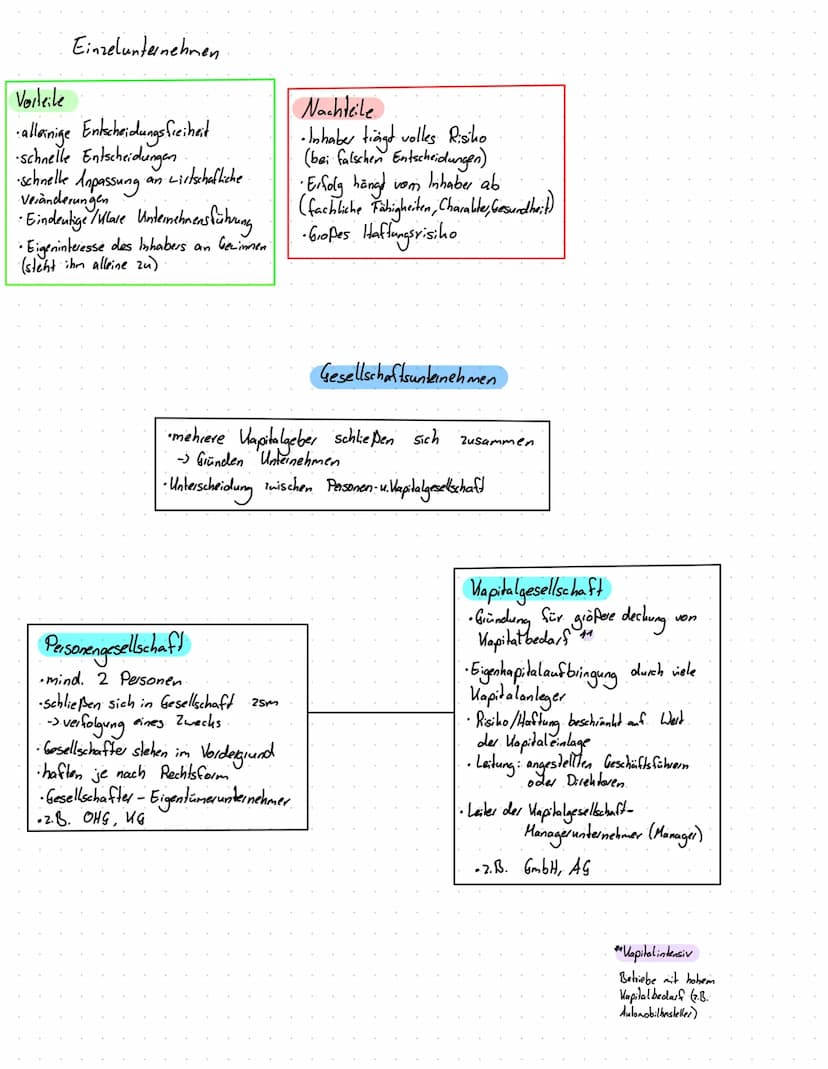 Einzelunternehmen
Vorteile
·alleinige Entscheidungsfreiheit
·schnelle Entscheidungen
·schnelle Anpassung an wirtschaftliche
Veränderungen
·Eindeutige/Klare Unternehmensführung
·Eigeninteresse des Inhabers an Gewinnen
(steht ihm alleine zu)
Nachteile
·Inhaber trägt volles Risiko
(bei falschen Entscheidungen)
·Erfolg hängt vom Inhaber ab
(fachliche Fähigkeiten, Charakter, Gesundheit)
·Großes Haftungsrisiko
Gesellschaftsunternehmen
·mehrere Kapitalgeber schließen sich zusammen
-> Gründen Unternehmen
·Unterscheidung zwischen Personen- u. Kapitalgesellschaft
Personengesellschaft
·mind. 2 Personen
·schließen sich in Gesellschaft zsm
-> verfolgung eines Zwecks
·Gesellschafter stehen im Vordergrund
·haften je nach Rechtsform
·Gesellschafter - Eigentümerunternehmer
·z.B. OHG, KG
Kapitalgesellschaft
·Gründung für größere deckung von
Kapitalbedarf **
·Eigenkapitalaufbringung durch viele
Kapitalanleger
·Risiko/Haftung beschränkt auf Wert
der Kapitaleinlage
·Leitung: angestellten Geschäftsführern
oder Direktoren
·Leiter der Kapitalgesellschaft-
Managerunternehmer (Manager)
·z.B. GmbH, AG
**Kapitalintensiv
Betriebe mit hohem
Kapitalbedarf (z.B.
Automobilhersteller)